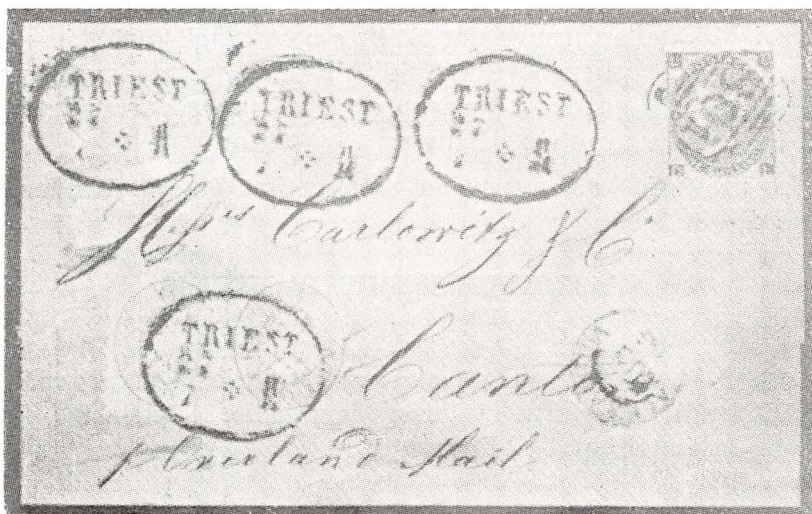 TRIEST
27
7 A
TRIEST
27
7 A
TRIEST
27
7 A
Messrs Carlowitz & Co
TRIEST
27
7 A
Canton
p Overland Mail